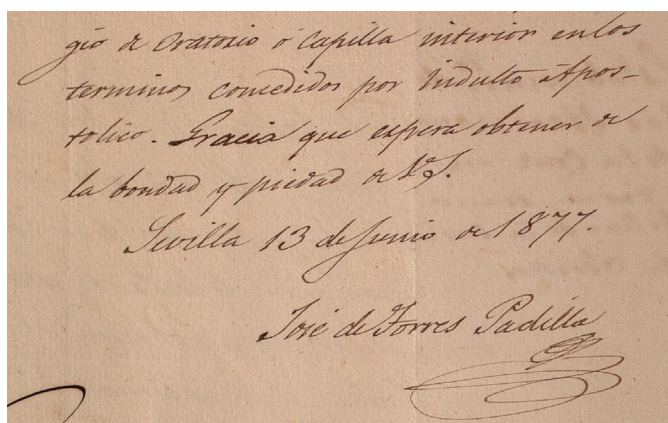 gio de Oratorio ó Capilla interior en los
terminos concedidos por Indulto Apos-
tolico. Gracia que espera obtener de
la bondad y piedad de V.S.
Sevilla 13 de Junio de 1877.
José de Torres Padilla